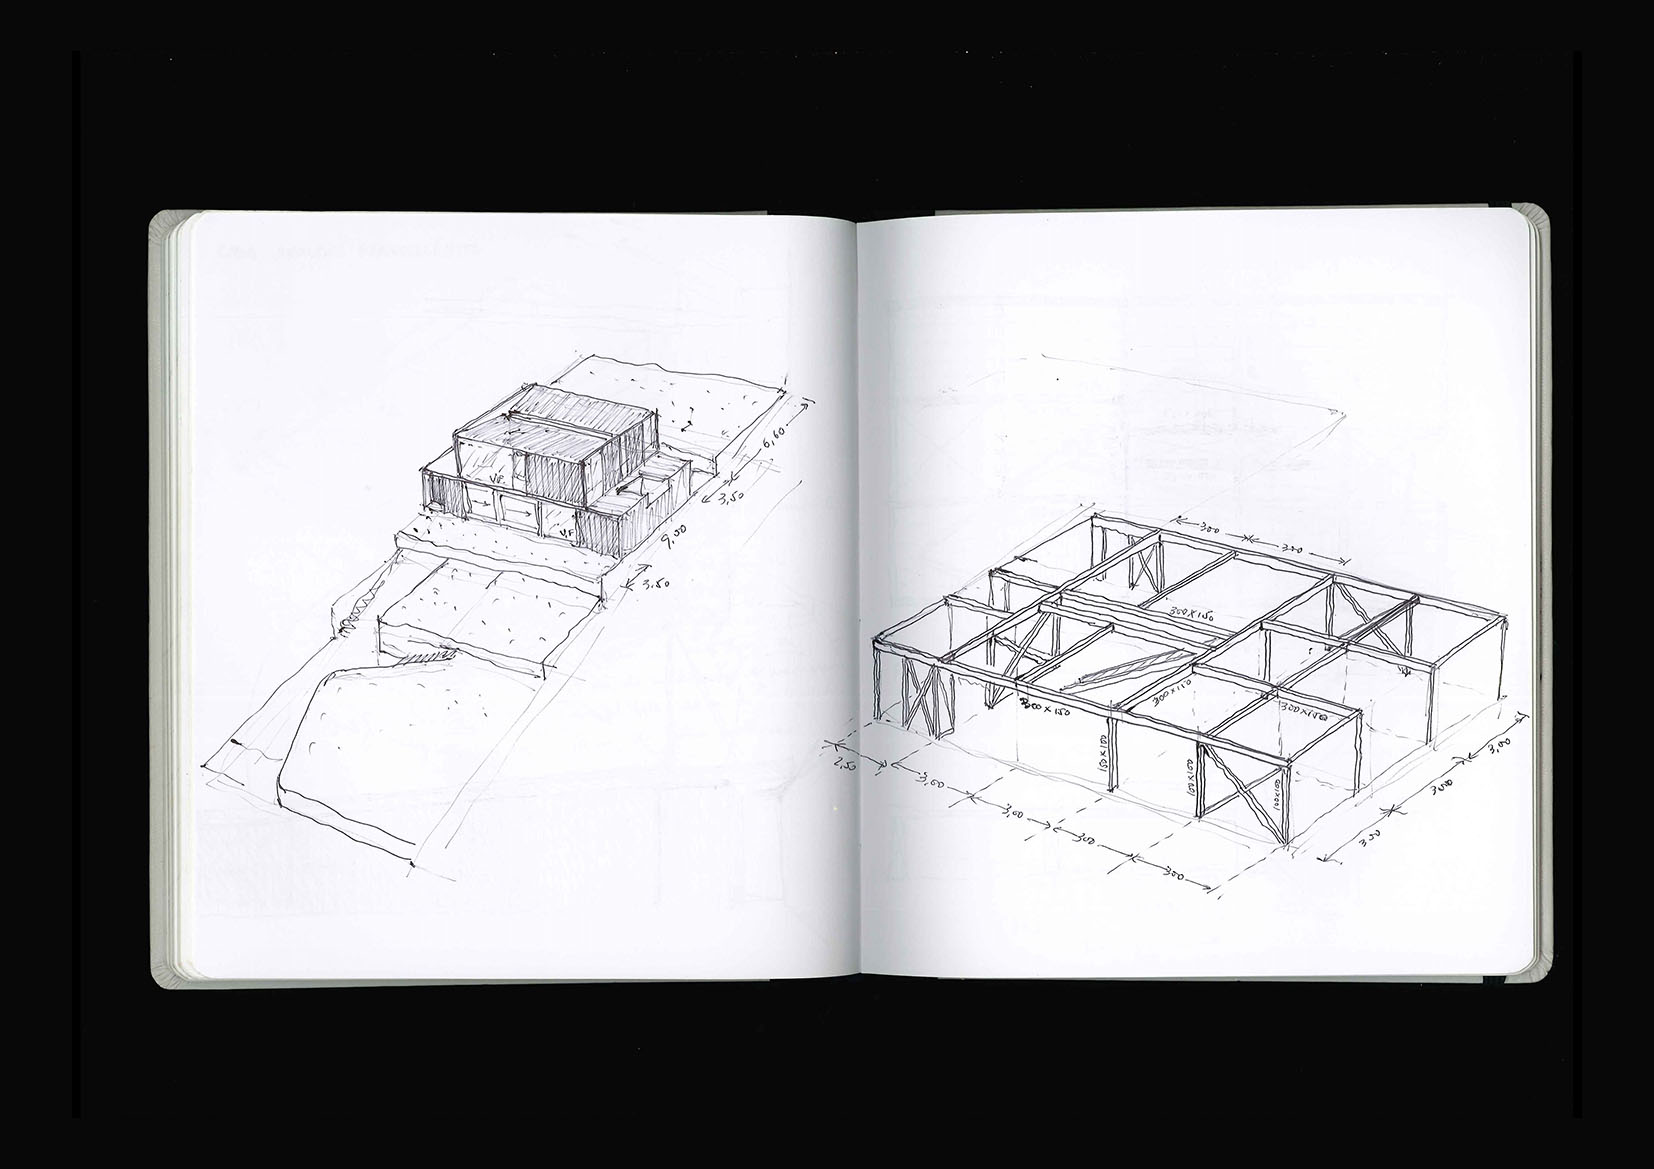 6,60
3,50
V.F.
V.F
9,00
3,50
3,00
300X150
300X150
300X150
300X150
150X100
100X100
100X100
2,50
3,00
3,00
300
300
3,00
3,00
3,50